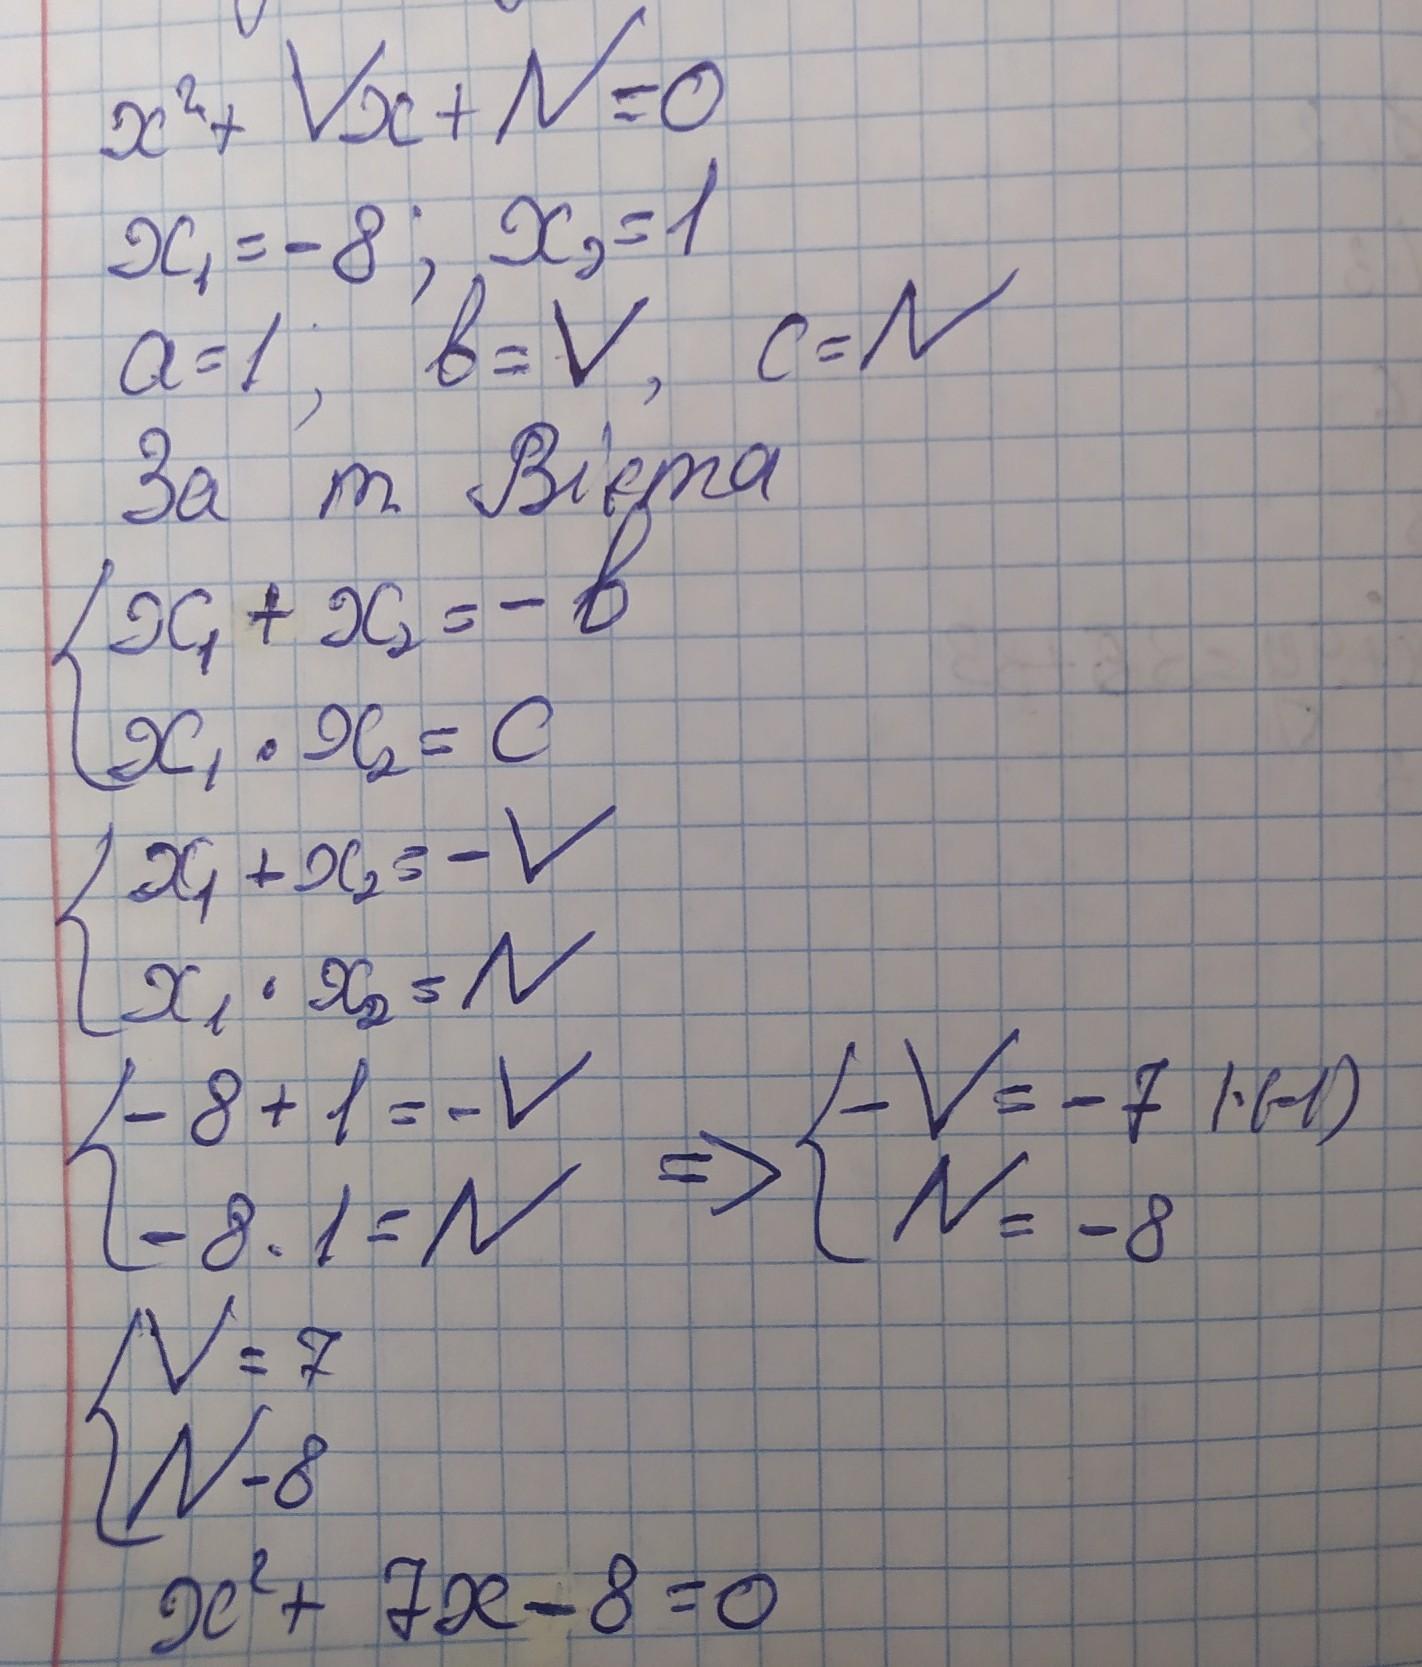 x² + Vx + N = 0
x₁ = -8; x₂ = 1
a = 1, b = V, c = N
За т Вієта
x₁ + x₂ = - b
x₁ · x₂ = c
x₁ + x₂ = - V
x₁ · x₂ = N
- 8 + 1 = - V
- 8 · 1 = N
=>
- V = - 7 |·(-1)
N = - 8
V = 7
N - 8
x² + 7x - 8 = 0